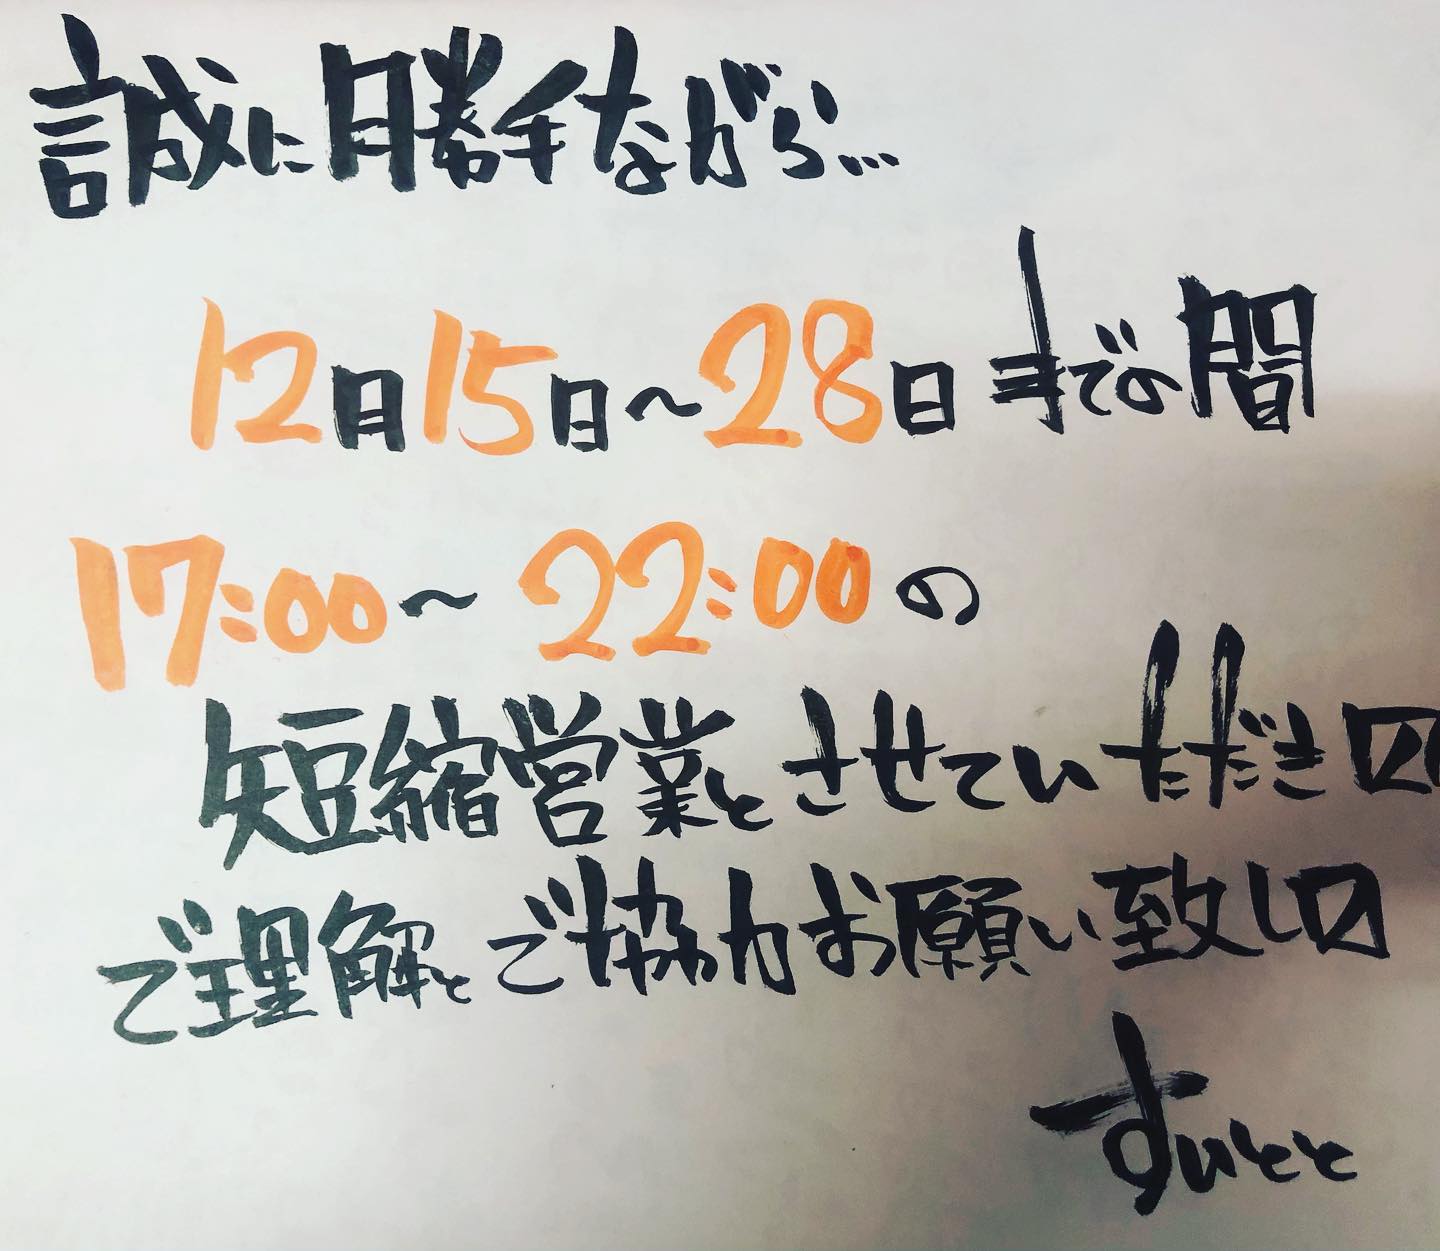 誠に勝手ながら...
12月15日〜28日までの間
17:00〜22:00の
短縮営業とさせていただき〼
ご理解とご協力お願い致し〼
すいとと